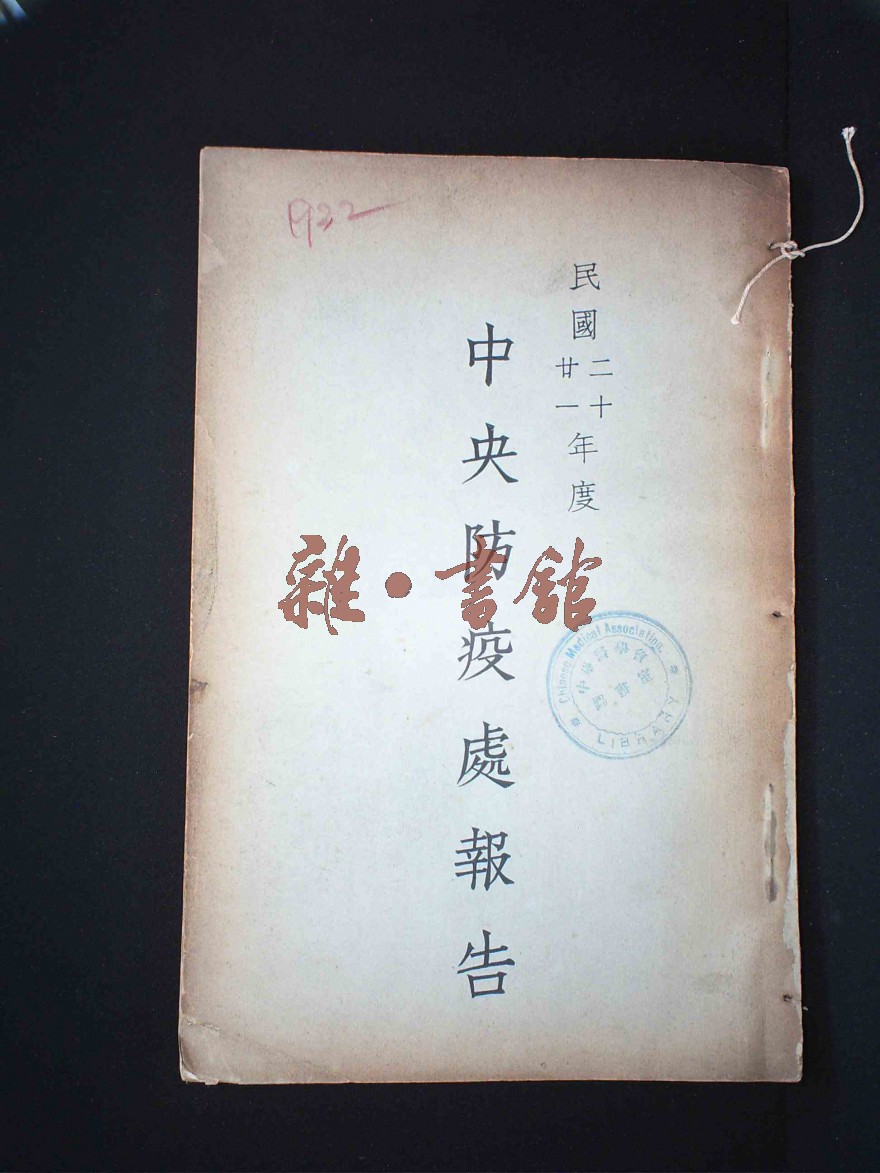 民國二十廿一年度
中央防疫處報告
雜·書館
Chinese Medical Association
LIBRARY